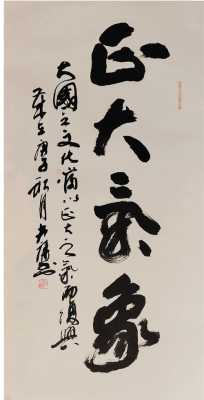 正大氣象
大國之文化當以正大之氣而復興
庚子秋月